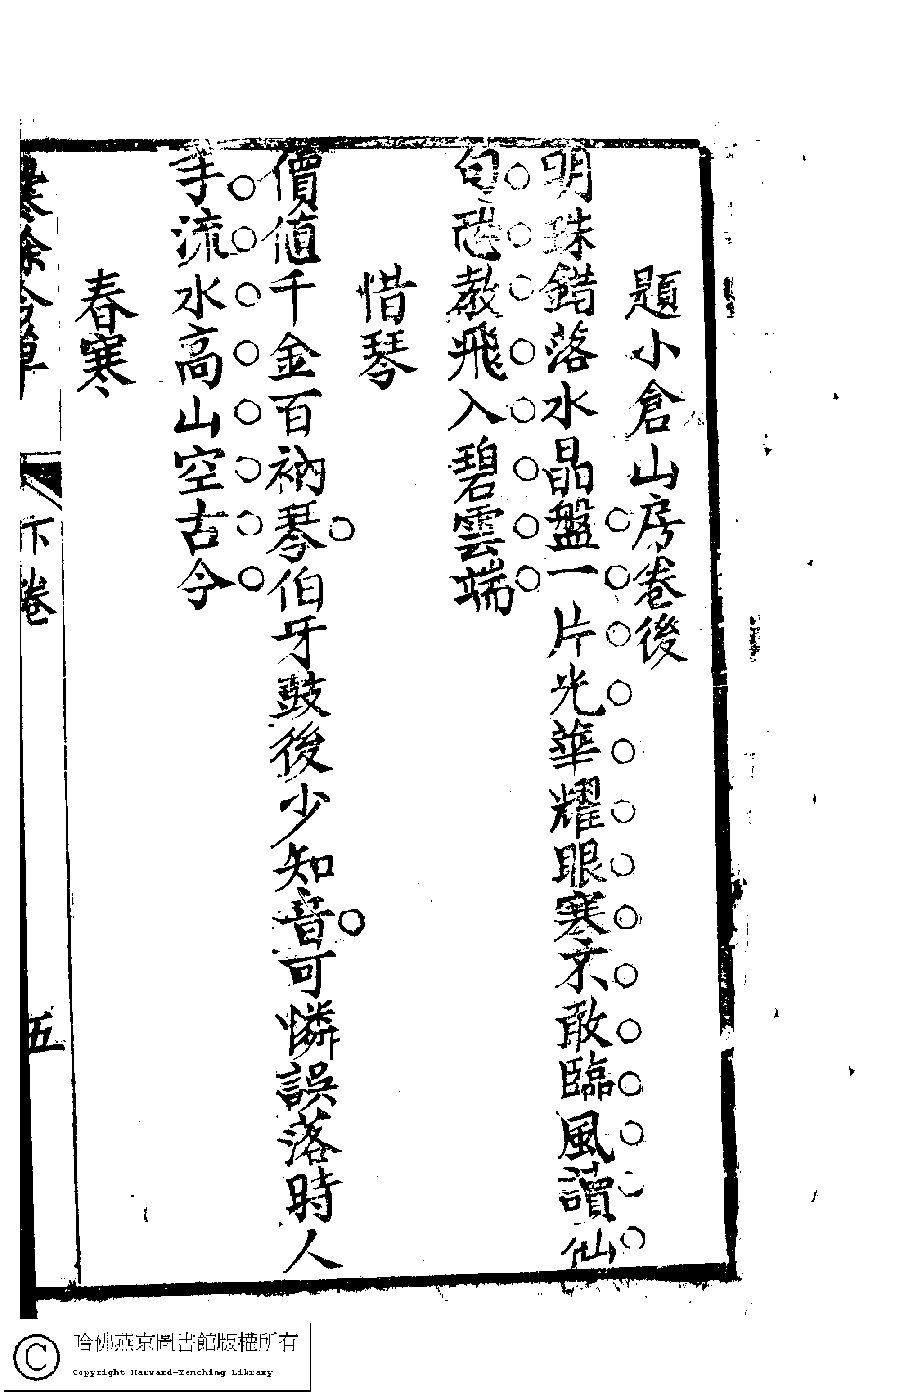 題小倉山房卷後
明珠錯落水晶盤一片光華耀眼寒不敢臨風讀仙
句恐教飛入碧雲端
惜琴
價值千金百衲琴伯牙鼓後少知音可憐誤落時人
手流水高山空古今
春寒
餘合草
下卷
五
哈佛燕京圖書館版權所有
Copyright Harvard-Yenching Library